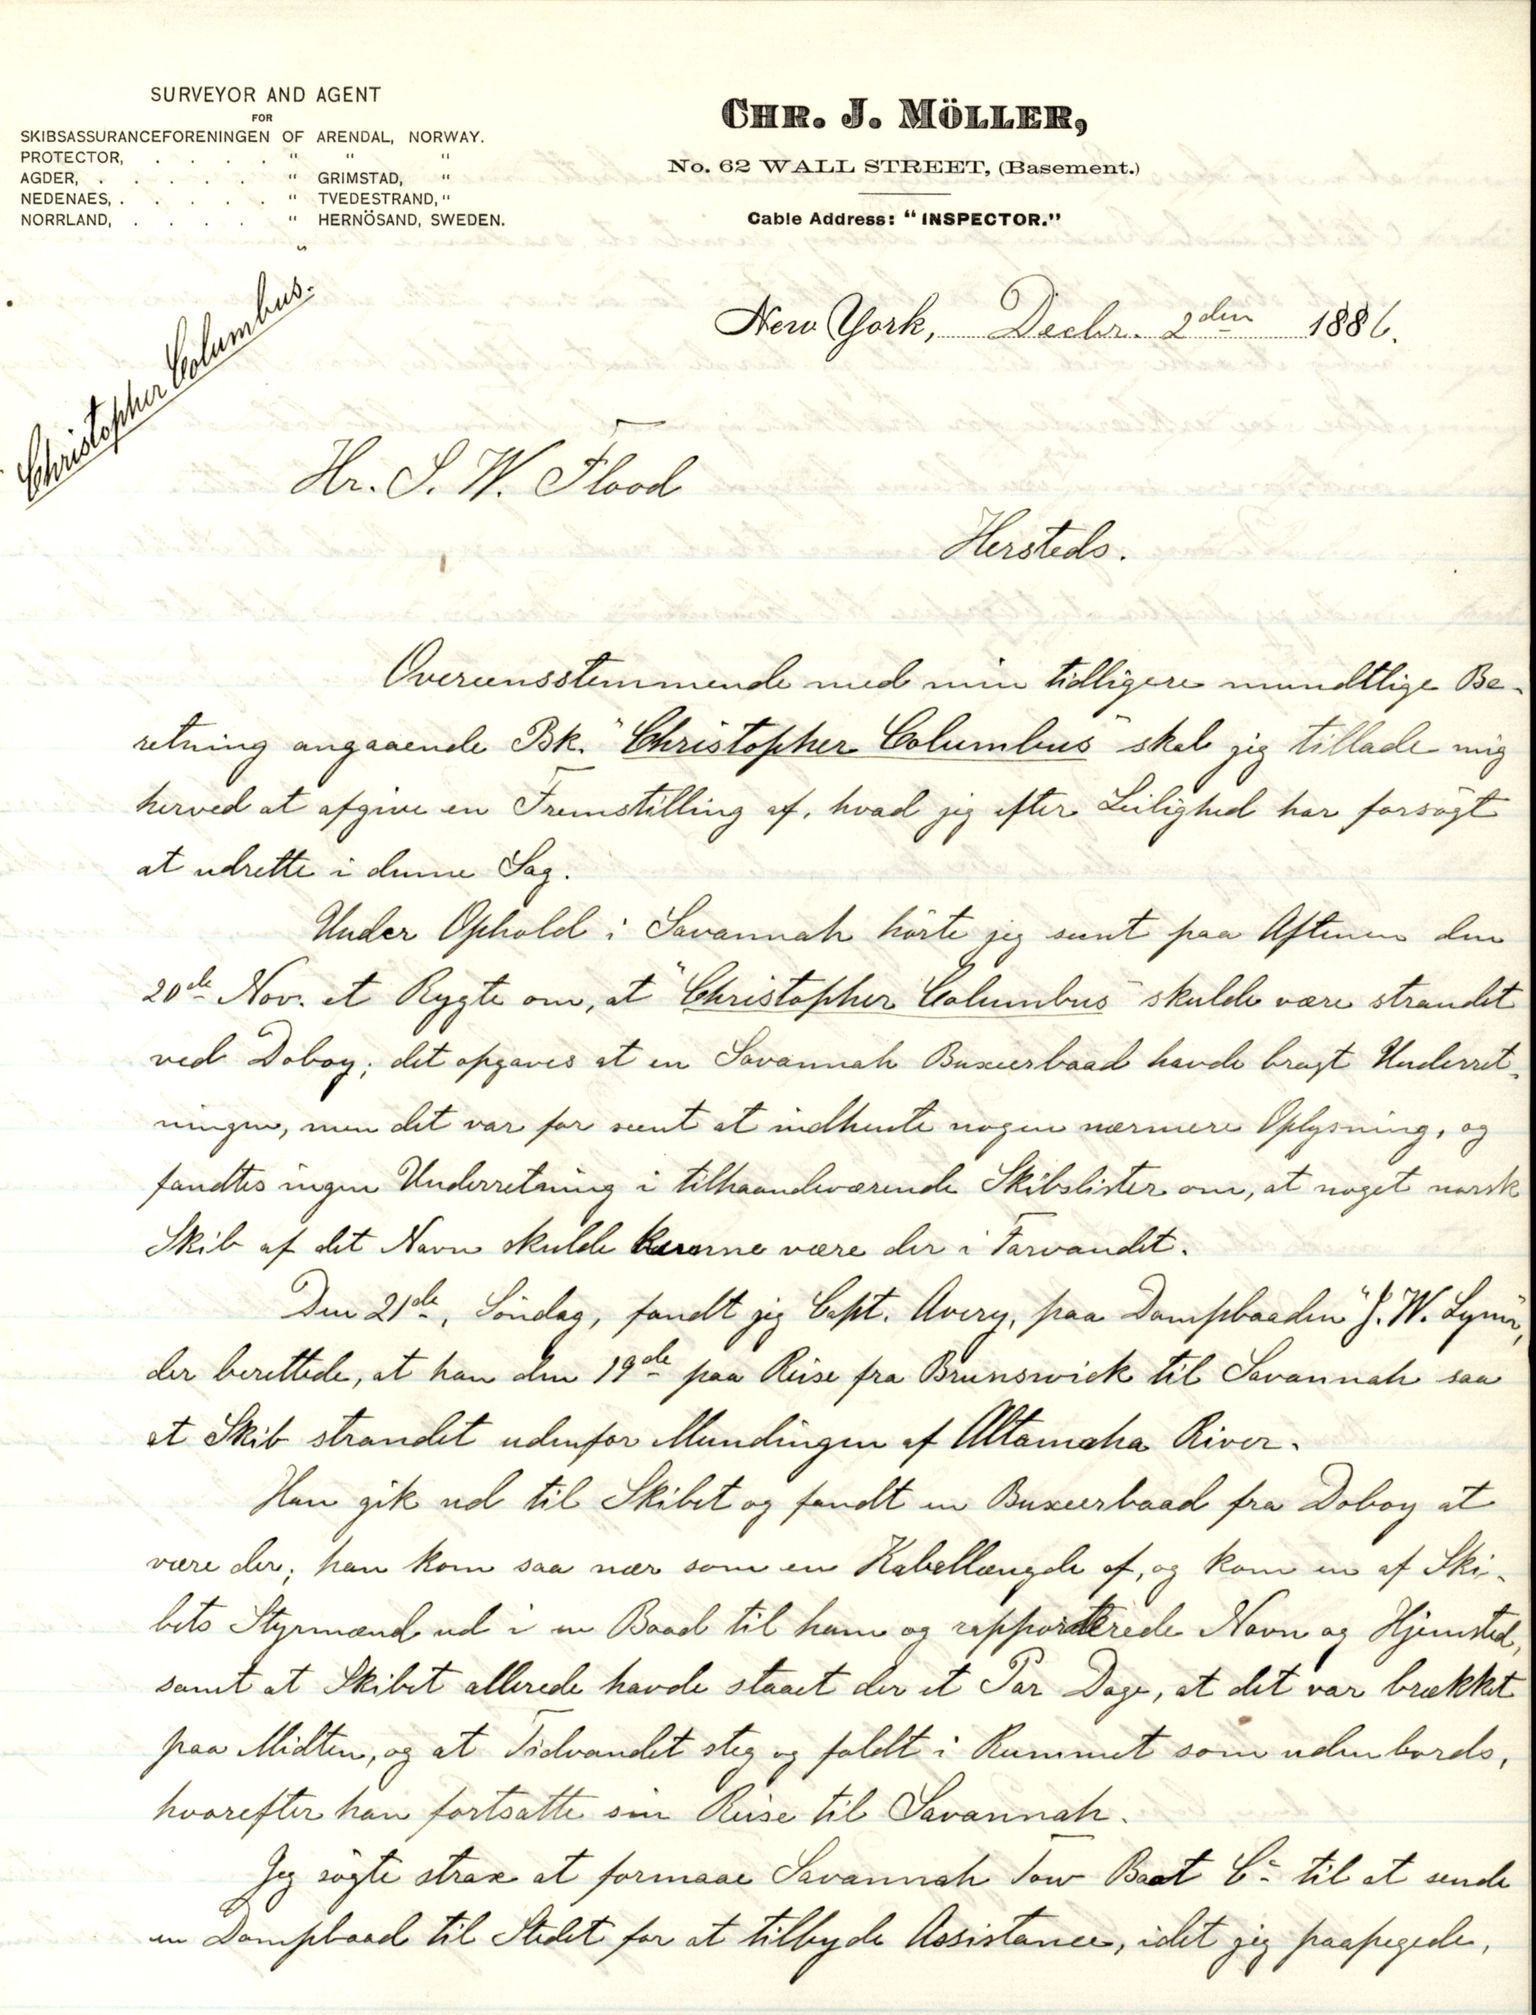 SURVEYOR AND AGENT
FOR
SKIBSASSURANCEFORENINGEN OF ARENDAL, NORWAY.
PROTECTOR, . . . . " " "
AGDER, . . . . . " GRIMSTAD, "
NEDENAES, . . . . . " TVEDESTRAND, "
NORRLAND, . . . . " HERNÖSAND, SWEDEN.
CHR. J. MÖLLER,
No. 62 WALL STREET, (Basement.)
Cable Address: "INSPECTOR."
New York, Decbr. 2den 1886.
Christopher Columbus.
Hr. S. W. Flood
Hersteds.
Overeensstemmende med min tidligere mundtlige Be-
retning angaaende Bk. "Christopher Columbus" skal jeg tillade mig
herved at afgive en Fremstilling af, hvad jeg efter Leilighed har forsögt
at udrette i denne Sag.
Under Ophold i Savannah hörte jeg sent paa Aftenen den
20de Nov. et Rygte om, at "Christopher Columbus" skulde være strandet
ved Doboy; det opgaves at en Savannah Buxeerbaad havde bragt Underret-
ningen, men det var for seent at indhente nogen nærmere Oplysning, og
fandtes ingen Underretning i tilhaandeværende Skibslister om, at noget norsk
Skib af det Navn skulde kunne være der i Farvandet.
Den 21de, Söndag, fandt jeg Capt. Avery, paa Dampbaaden "J. W. Lynn",
der berettede, at han den 19de paa Reise fra Brunswick til Savannah saa
et Skib strandet udenfor Mundingen af Altamaha River.
Han gik ud til Skibet og fandt en Buxeerbaad fra Doboy at
være der; han kom saa nær som en Kabellængde af, og kom en af Ski-
bets Styrmænd ud i en Baad til ham og rapporterede Navn og Hjemsted,
samt at Skibet allerede havde staaet der et Par Dage, at det var brækket
paa Midten, og at Tidvandet steg og faldt i Rummet som udenbords,
hvorefter han fortsatte sin Reise til Savannah.
Jeg sögte strax at formaae Savannah Tow Boat Co. til at sende
en Dampbaad til Stedet for at tilbyde Assistance, idet jeg paapegede,